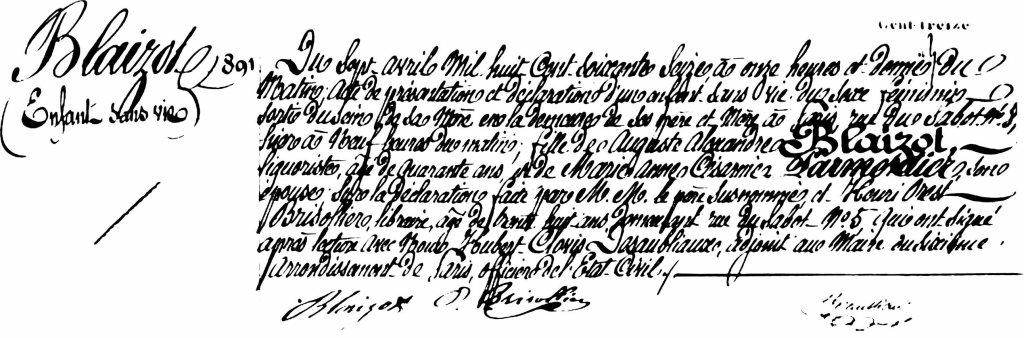 Cent treize
Blaizot
(Enfant sans vie)
891
Du Sept avril Mil huit Cent soixante Seize à onze heures et demie du
Matin, acte de présentation et déclaration d'un enfant Sans Vie du Sexe féminin
sorti du sein de sa Mère en la demeure de ses père et Mère à Paris, rue du Sabot Nº 5,
hier à Neuf heures du matin; fille de Auguste Alexandre Blaizot,
liquoriste, âgé de quarante ans, et de Marie anne Parmentier, son
épouse; Sur la déclaration faite par M. M. le père susnommé et Henri
libraire, âgé de trente huit ans demeurant rue du Sabot Nº 5, qui ont signé
après lecture avec Nous Clovis adjoint au Maire du sixième
arrondissement de Paris, officier de l'Etat Civil.
Blaizot